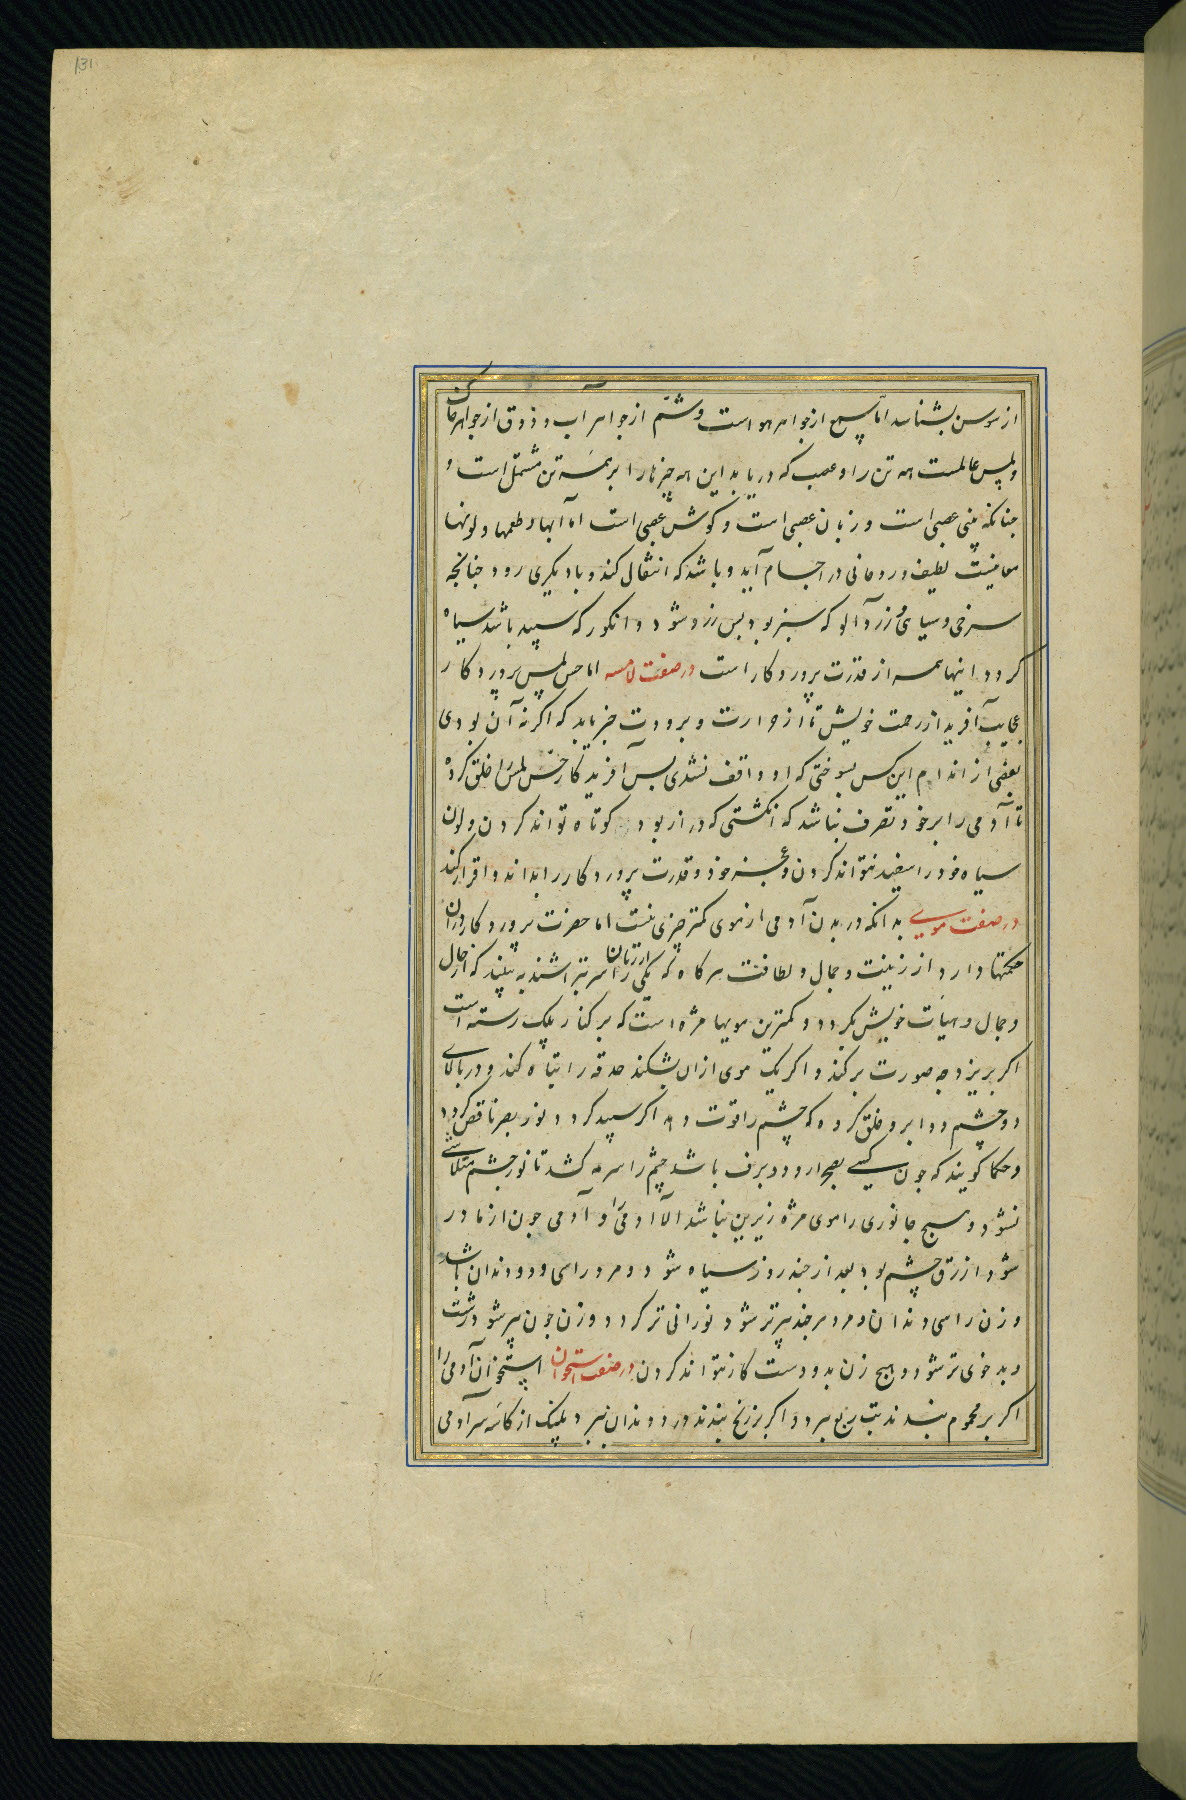 131
از سوسن بشناسد اما سمع از جواهر هواست و شم از جواهر آب و ذوق از جواهر خاک
و لمس عالمست همه تن را و عصب که دریابد این همه چیزها را بر همه تن مشتمل است و
چنانکه بینی عصبی است و زبان عصبی است و کوش عصبی است اما آنها و طعمها و لونها
معانیست لطیف و روحانی در اجسام آید و باشد که انتقال کند و بادیکری رود چنانچه
سرخی و سیاهی و زردآلو که سبز بود پس زرد شود و انکور که سپید باشد سیاه
کردد اینها همه از قدرت پروردکار است در صفت لامسه اما حس لمس پروردکار
عجایب آفرید از رحمت خویش تا از حرارت و برودت خبر یابد که اکر نه آن بودی
بعضی از اندام این کس بسوختی که او واقف نشدی پس آفریدکار حس لمس را خلق کرده
تا آدمی را بر خود تصرف نباشد که انکشتی که دراز بود کوتاه تواند کردن و لون
سیاه خود را سفید نتواند کردن و عجز خود و قدرت پروردکار را بداند و اقرار کند
در صفت موی بدانکه در بدن آدمی از موی کمتر چیزی نیست اما حضرت پروردکار در آن
حکمتها دارد از زینت و جمال و لطافت هرکاه که یکی را از زنان سر بتراشند به بیند که از حال
و جمال و هیأت خویش بکردد و کمترین مویها مژه است که بر کنار پلک رسته است
اکر بریزد چه صورت برکند و اکر یک موی ازان بشکند حدقه را تباه کند و در بالای
دو چشم دو ابرو خلق کرده که چشم را قوت دهد اکر سپید کردد نور بصر ناقص کردد
و حکما کویند که چون کسی بصحرا رود و برف باشد چشم را سرمه کشد تا نور چشم متلاشی
نشود و هیچ جانوری را موی مژه زیرین نباشد الا آدمی را و آدمی چون از مادر
شود ازرق چشم بود بعد از چند روز سیاه شود و مرد را سی و دو دندان باشد
و زن را سی دندان و مرد هرچند پیرتر شود نورانی تر کردد و زن چون پیر شود زشت
و بدخوی تر شود و هیچ زن بدو دست کار نتواند کردن در صفت استخوان استخوان آدمی را
اکر بر محموم بندند تب ربع ببرد و اکر بر زنخ بندند درد دندان ببرد پلنک از کاسه سر آدمی